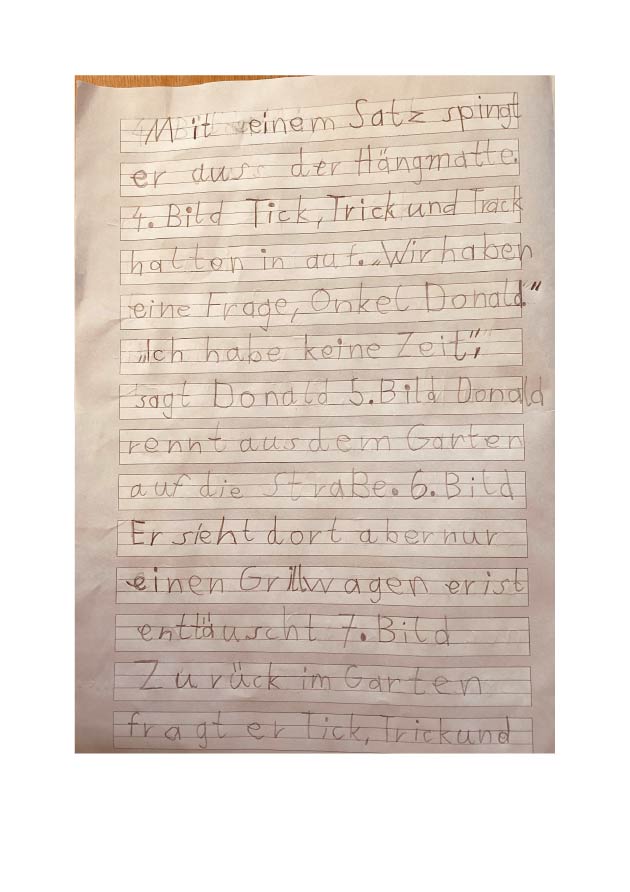 Mit einem Satz spingt
er aus der Hängmatte.
4. Bild Tick, Trick und Track
halten in auf. „Wir haben
eine Frage, Onkel Donald."
„Ich habe keine Zeit",
sagt Donald 5. Bild Donald
rennt aus dem Garten
auf die Straße. 6. Bild
Er sieht dort aber nur
einen Grillwagen er ist
enttäuscht 7. Bild
Zurück im Garten
fragt er Tick, Trick und